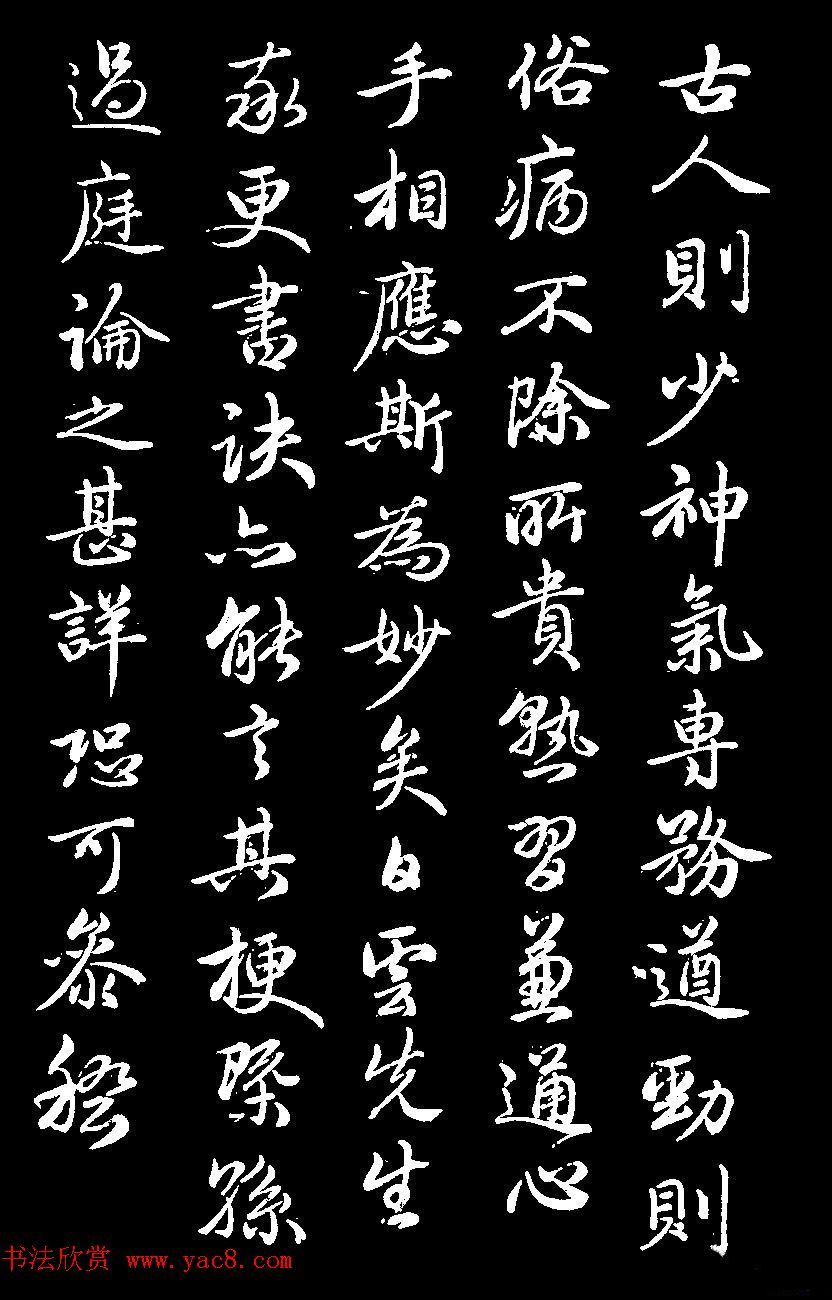 古人則少神氣專務遒勁則
俗病不除所貴熟習兼通心
手相應斯為妙矣白雲先生
率更書訣亦能言其梗槩孫
過庭論之甚詳恐可參稽
书法欣赏 www.yac8.com